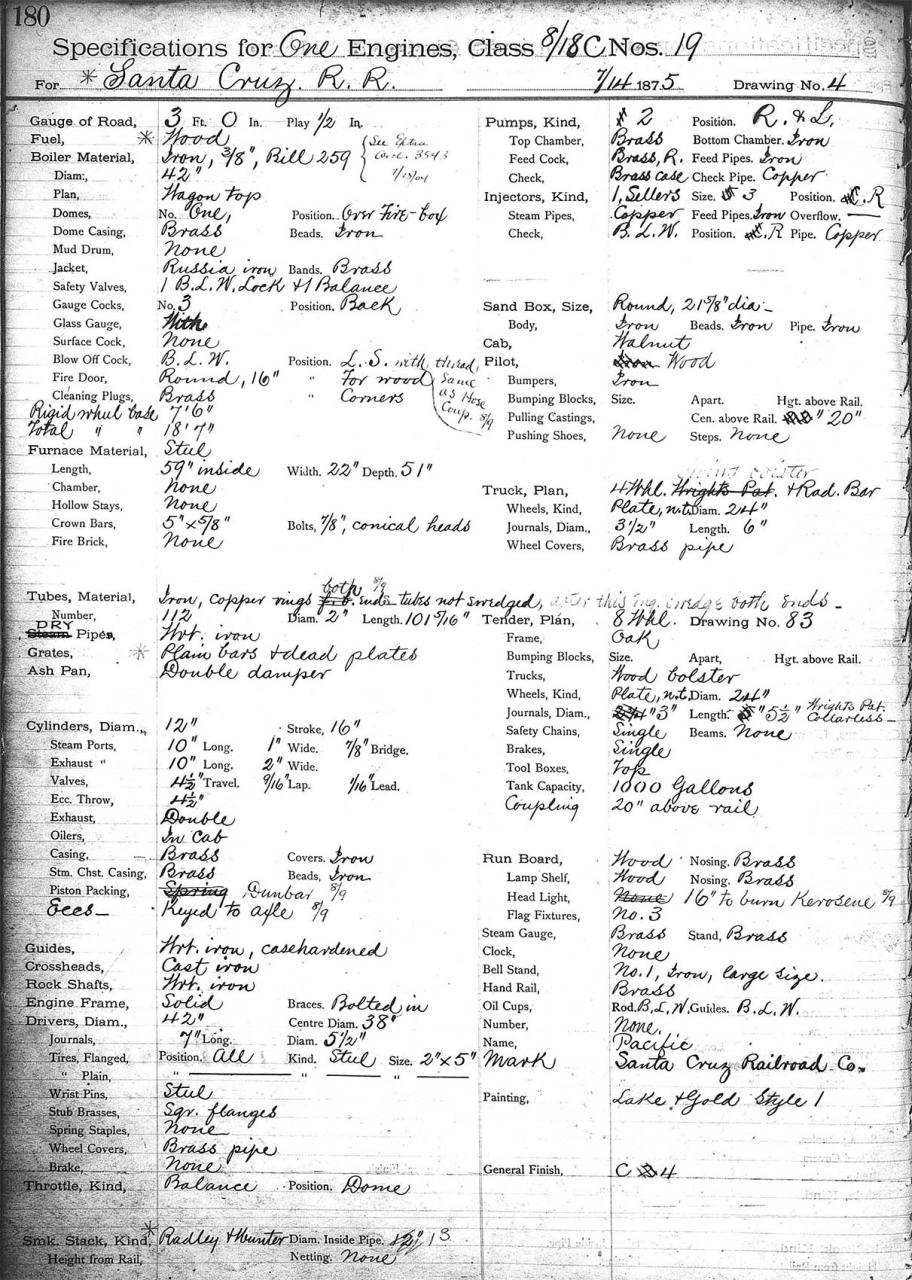 180
Specifications for One Engines, Class 8/18C Nos. 19
For *Santa Cruz R. R. 7/14 1875 Drawing No. 4
Gauge of Road, 3 Ft. 0 In. Play 1/2 In.
Fuel, * Wood
Boiler Material, Iron, 3/8", Bill 259 { See Extra
3543
Diam:, 42"
Plan, Wagon top
Domes, No. One, Position. Over Fire-box
Dome Casing, Brass Beads. Iron
Mud Drum, None
Jacket, Russia iron Bands. Brass
Safety Valves, 1 B.L.W. Lock & 1 Balance
Gauge Cocks, No. 3 Position. Back
Glass Gauge, With
Surface Cock, None
Blow Off Cock, B.L.W. Position. L.S. with thread
Same as Hose Coup. 8/9
Fire Door, Round, 16" " For wood
Cleaning Plugs, Brass " Corners
Rigid wheel base 7'6"
Total " " 18'7"
Furnace Material, Steel
Length, 59" inside Width. 22" Depth. 51"
Chamber, None
Hollow Stays, None
Crown Bars, 5" x 5/8" Bolts, 7/8", conical heads
Fire Brick, None
Tubes, Material, Iron, copper rings f.b. both 8/9 ends tubes not swedged, after this eng. swedge both ends -
Number, 112 Diam. 2" Length. 101 5/16"
Steam DRY Pipes, Wrt. iron
Grates, * Plain bars & dead plates
Ash Pan, Double damper
Cylinders, Diam., 12" Stroke, 16"
Steam Ports, 10" Long. 1" Wide. 7/8" Bridge.
Exhaust " 10" Long. 2" Wide.
Valves, 4 1/2" Travel. 9/16" Lap. 1/16" Lead.
Ecc. Throw, 4 1/2"
Exhaust, Double
Oilers, In cab
Casing, Brass Covers. Iron
Stm. Chst. Casing, Brass Beads, Iron
Piston Packing, Spring Dunbar 8/9
Ecces - Keyed to axle 8/9
Guides, Wrt. iron, casehardened
Crossheads, Cast iron
Rock Shafts, Wrt. iron
Engine Frame, Solid Braces. Bolted in
Drivers, Diam., 42" Centre Diam. 38"
Journals, 7" Long. Diam. 5 1/2"
Tires, Flanged, Position. All Kind. Steel Size. 2" x 5"
" Plain, " " "
Wrist Pins, Steel
Stub Brasses, Sqr. flanges
Spring Staples, None
Wheel Covers, Brass pipe
Brake, None
Throttle, Kind, Balance Position. Dome
Smk. Stack, Kind, * Radley & Hunter Diam. Inside Pipe. 12" 13
Height from Rail, Netting. None
Pumps, Kind, # 2 Position. R. & L.
Top Chamber, Brass Bottom Chamber. Iron
Feed Cock, Brass, R. Feed Pipes. Iron
Check, Brass case Check Pipe. Copper
Injectors, Kind, 1, Sellers Size. 3 Position. C. R
Steam Pipes, Copper Feed Pipes. Iron Overflow.
Check, B.L.W. Position. C. R Pipe. Copper
Sand Box, Size, Round, 21 5/8" dia.
Body, Iron Beads. Iron Pipe. Iron
Cab, Walnut
Pilot, Iron Wood
Bumpers, Iron
Bumping Blocks, Size. Apart. Hgt. above Rail.
Pulling Castings, Cen. above Rail. " 20"
Pushing Shoes, None Steps. None
Swing bolster
Truck, Plan, 4 Whl. Wrights Pat. & Rad. Bar
Wheels, Kind, Plate, n.t. Diam. 24"
Journals, Diam., 3 1/2" Length. 6"
Wheel Covers, Brass pipe
Tender, Plan, 8 Whl. Drawing No. 83
Frame, Oak
Bumping Blocks, Size. Apart, Hgt. above Rail.
Trucks, Wood bolster
Wheels, Kind, Plate, n.t. Diam. 24"
Journals, Diam., " 3" Length. " 5 1/2" Wrights Pat. Collarless -
Safety Chains, Single Beams. None
Brakes, Single
Tool Boxes, Top
Tank Capacity, 1000 Gallons
Coupling 20" above rail
Run Board, Wood Nosing. Brass
Lamp Shelf, Wood Nosing. Brass
Head Light, None 16" to burn Kerosene 8/9
Flag Fixtures, No. 3
Steam Gauge, Brass Stand, Brass
Clock, None
Bell Stand, No. 1, Iron, large size.
Hand Rail, Brass
Oil Cups, Rod. B.L.W. Guides. B.L.W.
Number, None.
Name, Pacific
Mark Santa Cruz Railroad Co.
Painting, Lake & Gold Style 1
General Finish, C 4